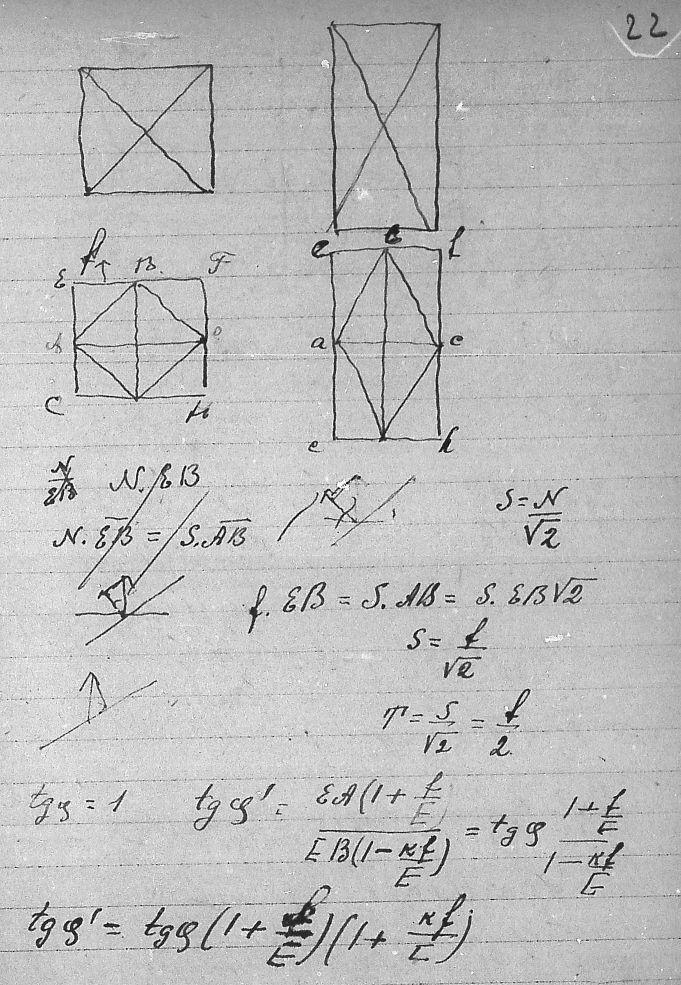 22
e b f
E f B F
A
a c
C H
e h
N/EB N. EB
N. EB = S. AB
S = N/√2
f. EB = S. AB = S. EB√2
S = f/√2
T = S/√2 = f/2
tg φ = 1 tg φ' = EA(1 + f/E) / EB(1 - κf/E) = tg φ (1 + f/E) / (1 - κf/E)
tg φ' = tg φ (1 + f/E)(1 + κf/E)